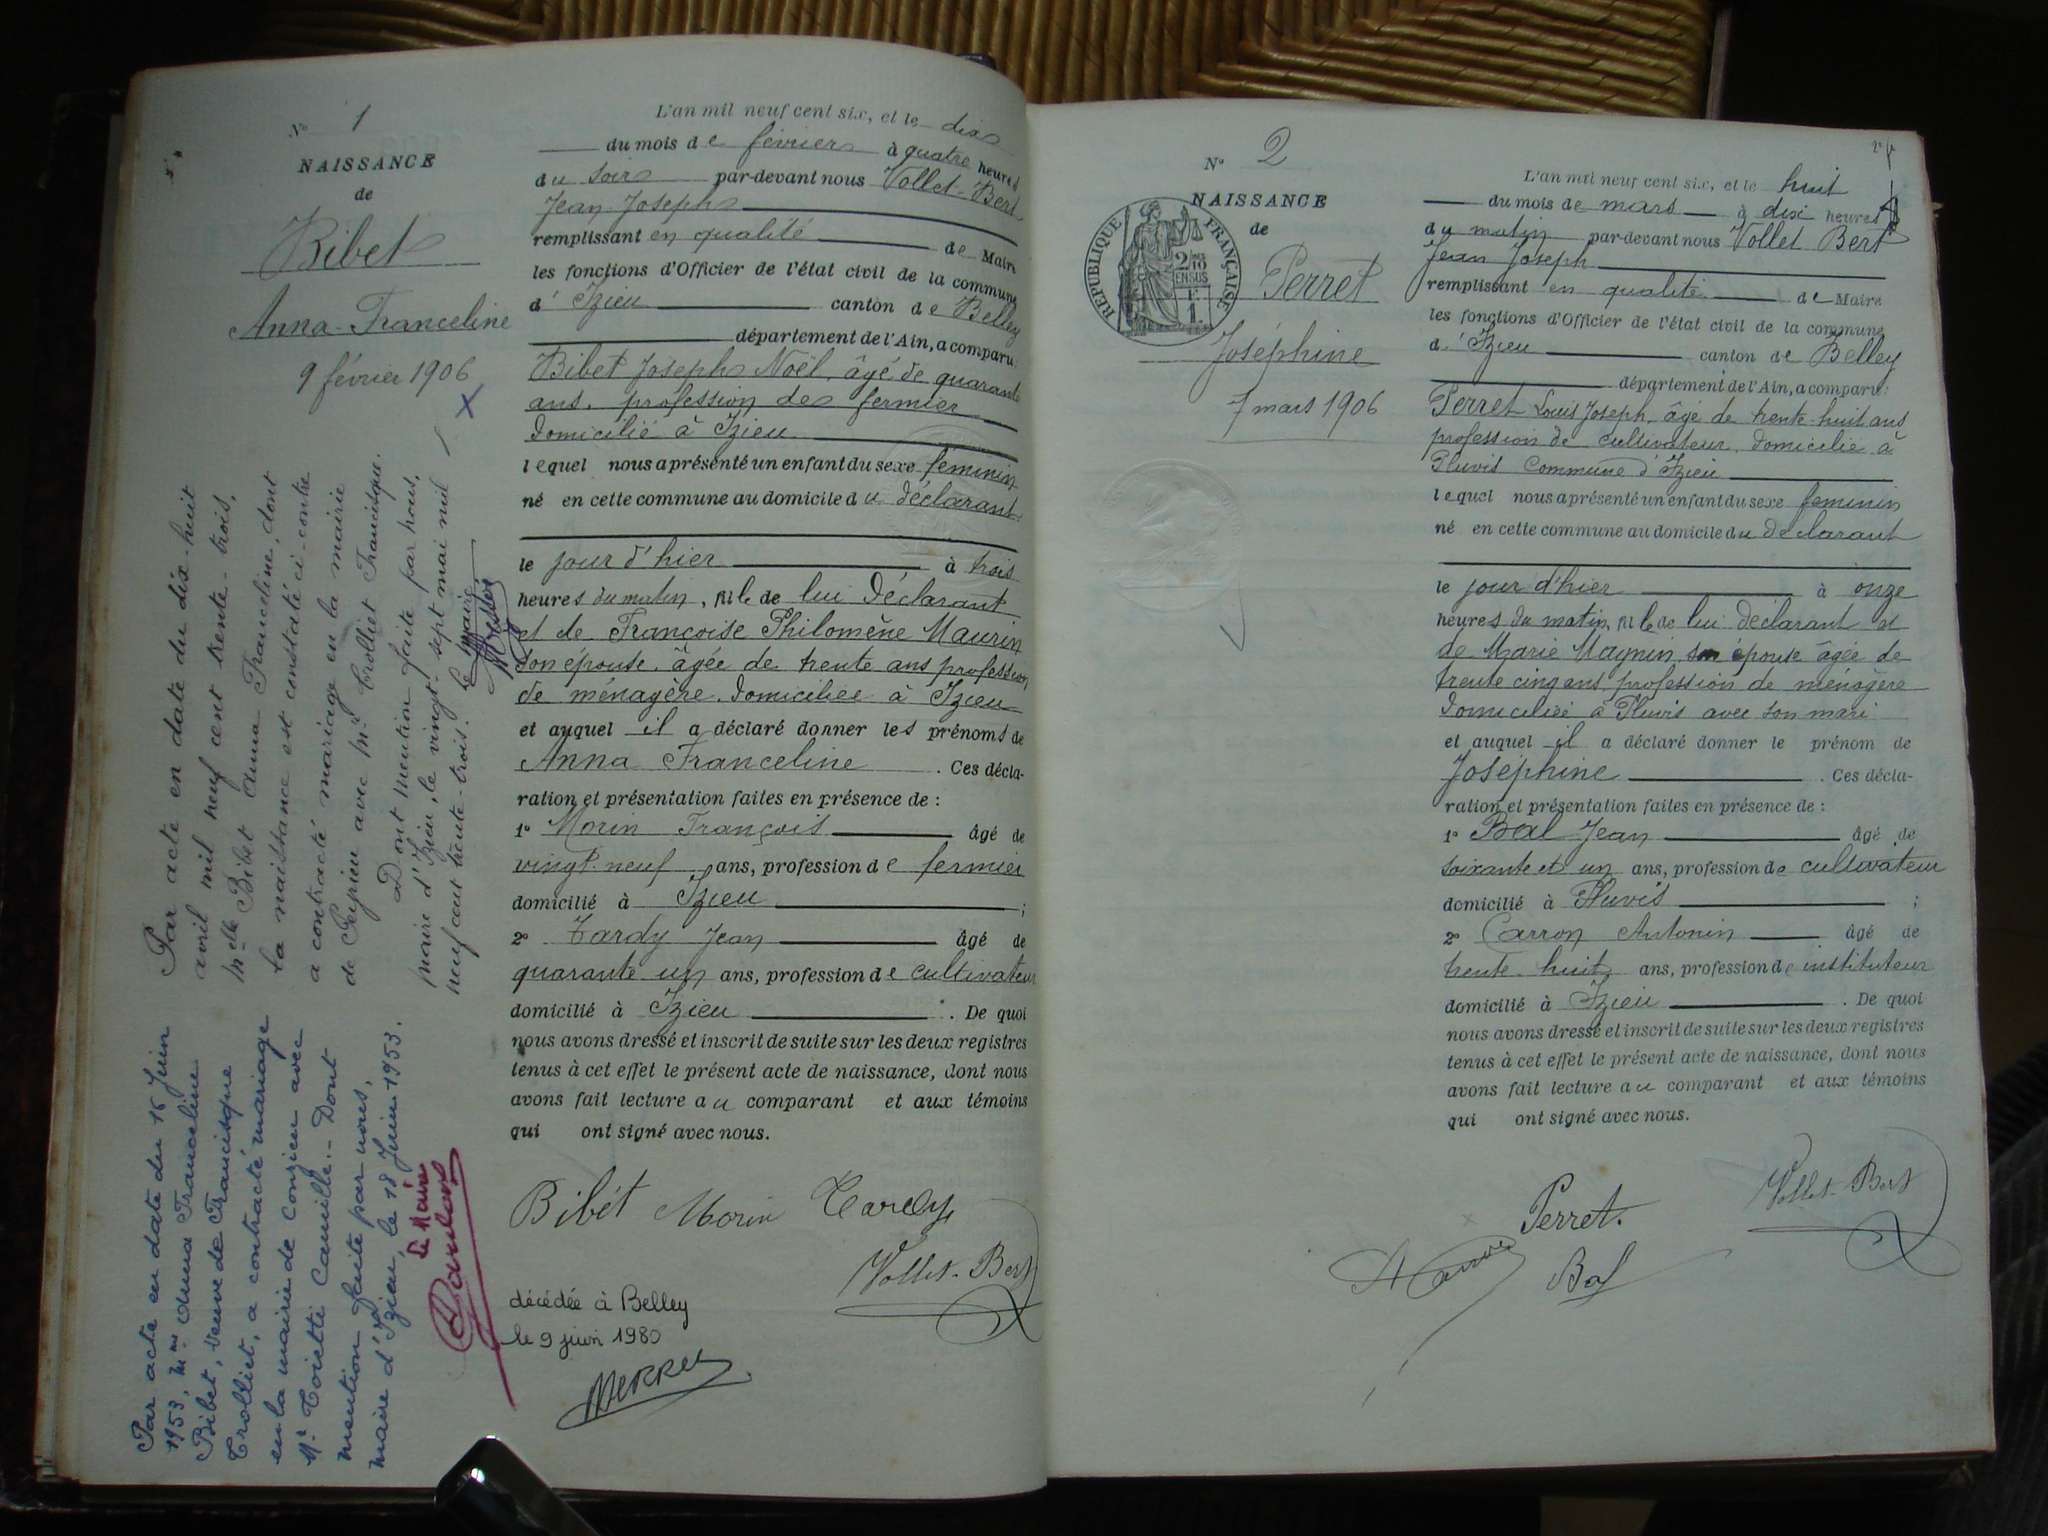 N° 1
NAISSANCE
de
Bibet
Anna-Franceline
9 février 1906
X
Par acte en date du dix-huit
avril mil neuf cent trente-trois,
Melle Bibet Anna Franceline, dont
la naissance est constatée ci-contre
a contracté mariage en la mairie
de Peyrieu avec Mr. Trolliet Francisque.
Dont mention faite par nous,
maire d'Izieu, le vingt-sept mai mil
neuf cent trente-trois. Le maire
Par acte en date du 16 Juin
1953, Mme Anna Franceline
Bibet, veuve de Francisque
Trolliet, a contracté mariage
en la mairie de Conzieu avec
Mr Toiette Camille.. Dont
mention faite par nous,
maire d'Izieu, le 18 Juin 1953.
Le Maire
L'an mil neuf cent six, et le dix
du mois de février à quatre heures
du soir par-devant nous Vollet-Bert
Jean Joseph
remplissant en qualité de Maire
les fonctions d'Officier de l'état civil de la commune
d'Izieu canton de Belley
département de l'Ain, a comparu:
Bibet Joseph Noël, âgé de quarante
ans, profession de fermier
domicilié à Izieu
lequel nous a présenté un enfant du sexe féminin
né en cette commune au domicile du déclarant
le jour d'hier à trois
heures du matin, fille de lui déclarant
et de Françoise Philomène Maurin
son épouse, âgée de trente ans profession
de ménagère, domiciliée à Izieu
et auquel il a déclaré donner les prénoms de
Anna Franceline. Ces décla-
ration et présentation faites en présence de:
1° Morin François âgé de
vingt-neuf ans, profession de fermier
domicilié à Izieu ;
2° Tardy Jean âgé de
quarante-un ans, profession de cultivateur
domicilié à Izieu. De quoi
nous avons dressé et inscrit de suite sur les deux registres
tenus à cet effet le présent acte de naissance, dont nous
avons fait lecture au comparant et aux témoins
qui ont signé avec nous.
Bibét Morin Tardy
Vollet-Bert
décédée à Belley
le 9 juin 1980
N° 2
NAISSANCE
de
RÉPUBLIQUE FRANÇAISE
2/10 EN SUS
1F.
Perret
Joséphine
7 mars 1906
L'an mil neuf cent six, et le huit
du mois de mars à dix heures
du matin par-devant nous Vollet Bert
Jean Joseph
remplissant en qualité de Maire
les fonctions d'Officier de l'état civil de la commune
d'Izieu canton de Belley
département de l'Ain, a comparu:
Perret Louis Joseph, âgé de trente-huit ans
profession de cultivateur, domicilié à
Pluvis Commune d'Izieu
lequel nous a présenté un enfant du sexe féminin
né en cette commune au domicile du déclarant
le jour d'hier à onze
heures du matin, fille de lui déclarant et
de Marie Magnin son épouse âgée de
trente cinq ans, profession de ménagère
domiciliée à Pluvis avec son mari
et auquel il a déclaré donner le prénom de
Joséphine. Ces décla-
ration et présentation faites en présence de:
1° Bal Jean âgé de
soixante et un ans, profession de cultivateur
domicilié à Pluvis ;
2° Carron Antonin âgé de
trente-huit ans, profession de instituteur
domicilié à Izieu. De quoi
nous avons dressé et inscrit de suite sur les deux registres
tenus à cet effet le présent acte de naissance, dont nous
avons fait lecture au comparant et aux témoins
qui ont signé avec nous.
Vollet-Bert
Perret.
A Carron Bal